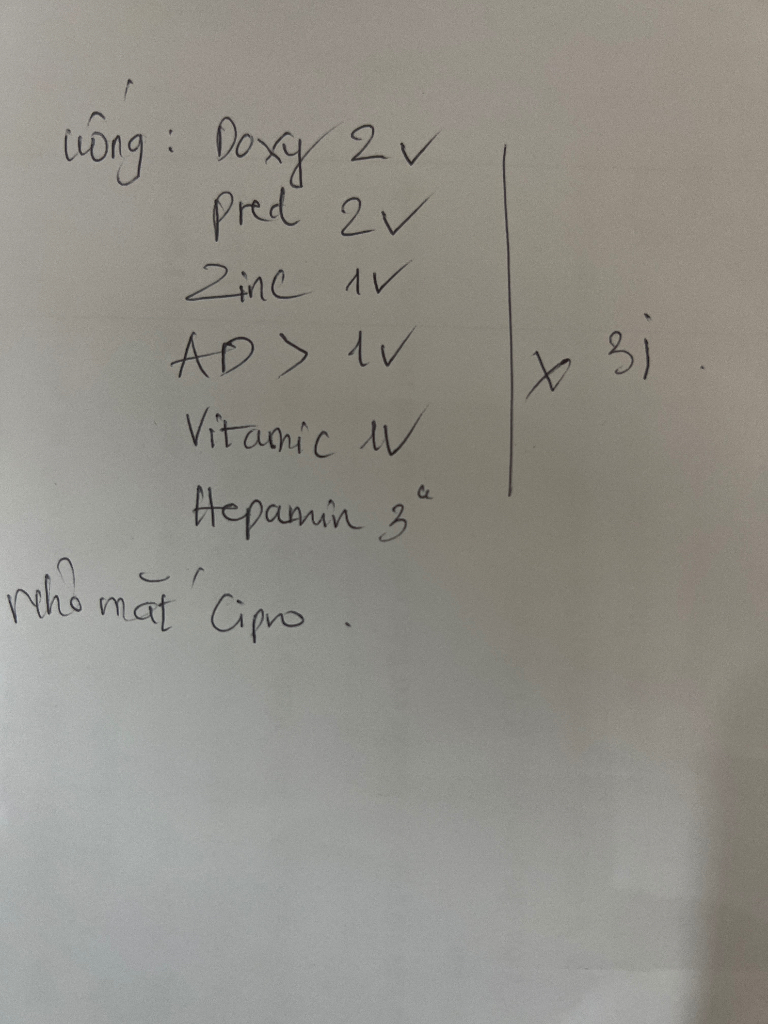 uống : Doxy 2v
pred 2v
Zinc 1v
AD > 1v
x 3j .
Vitamic 1v
Hepamin 3ª
nhỏ mắt Cipro .